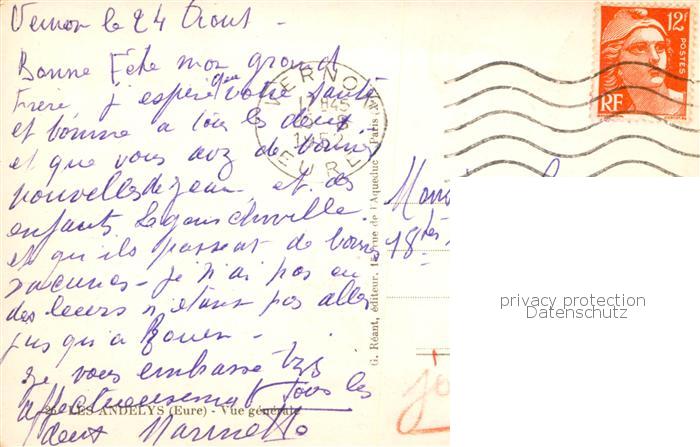 Vernon le 24 Aout -
Bonne Fête mon grand
Frère j'espère que votre santé
et bonne a tous les deux
et que vous avz de bonnes
nouvelles de Jean et des
enfants
et qu'ils passent de bonnes
vacances - je n'ai pas eu
des leurs n'étant pas allés
jusqu'a Rouen -
je vous embrasse
affectueusement tous les
deux
VERNON
EURE
12F
POSTES
RF
G. Réant, éditeur, rue de l'Aqueduc - Paris
LES ANDELYS (Eure) - Vue générale
privacy protection
Datenschutz